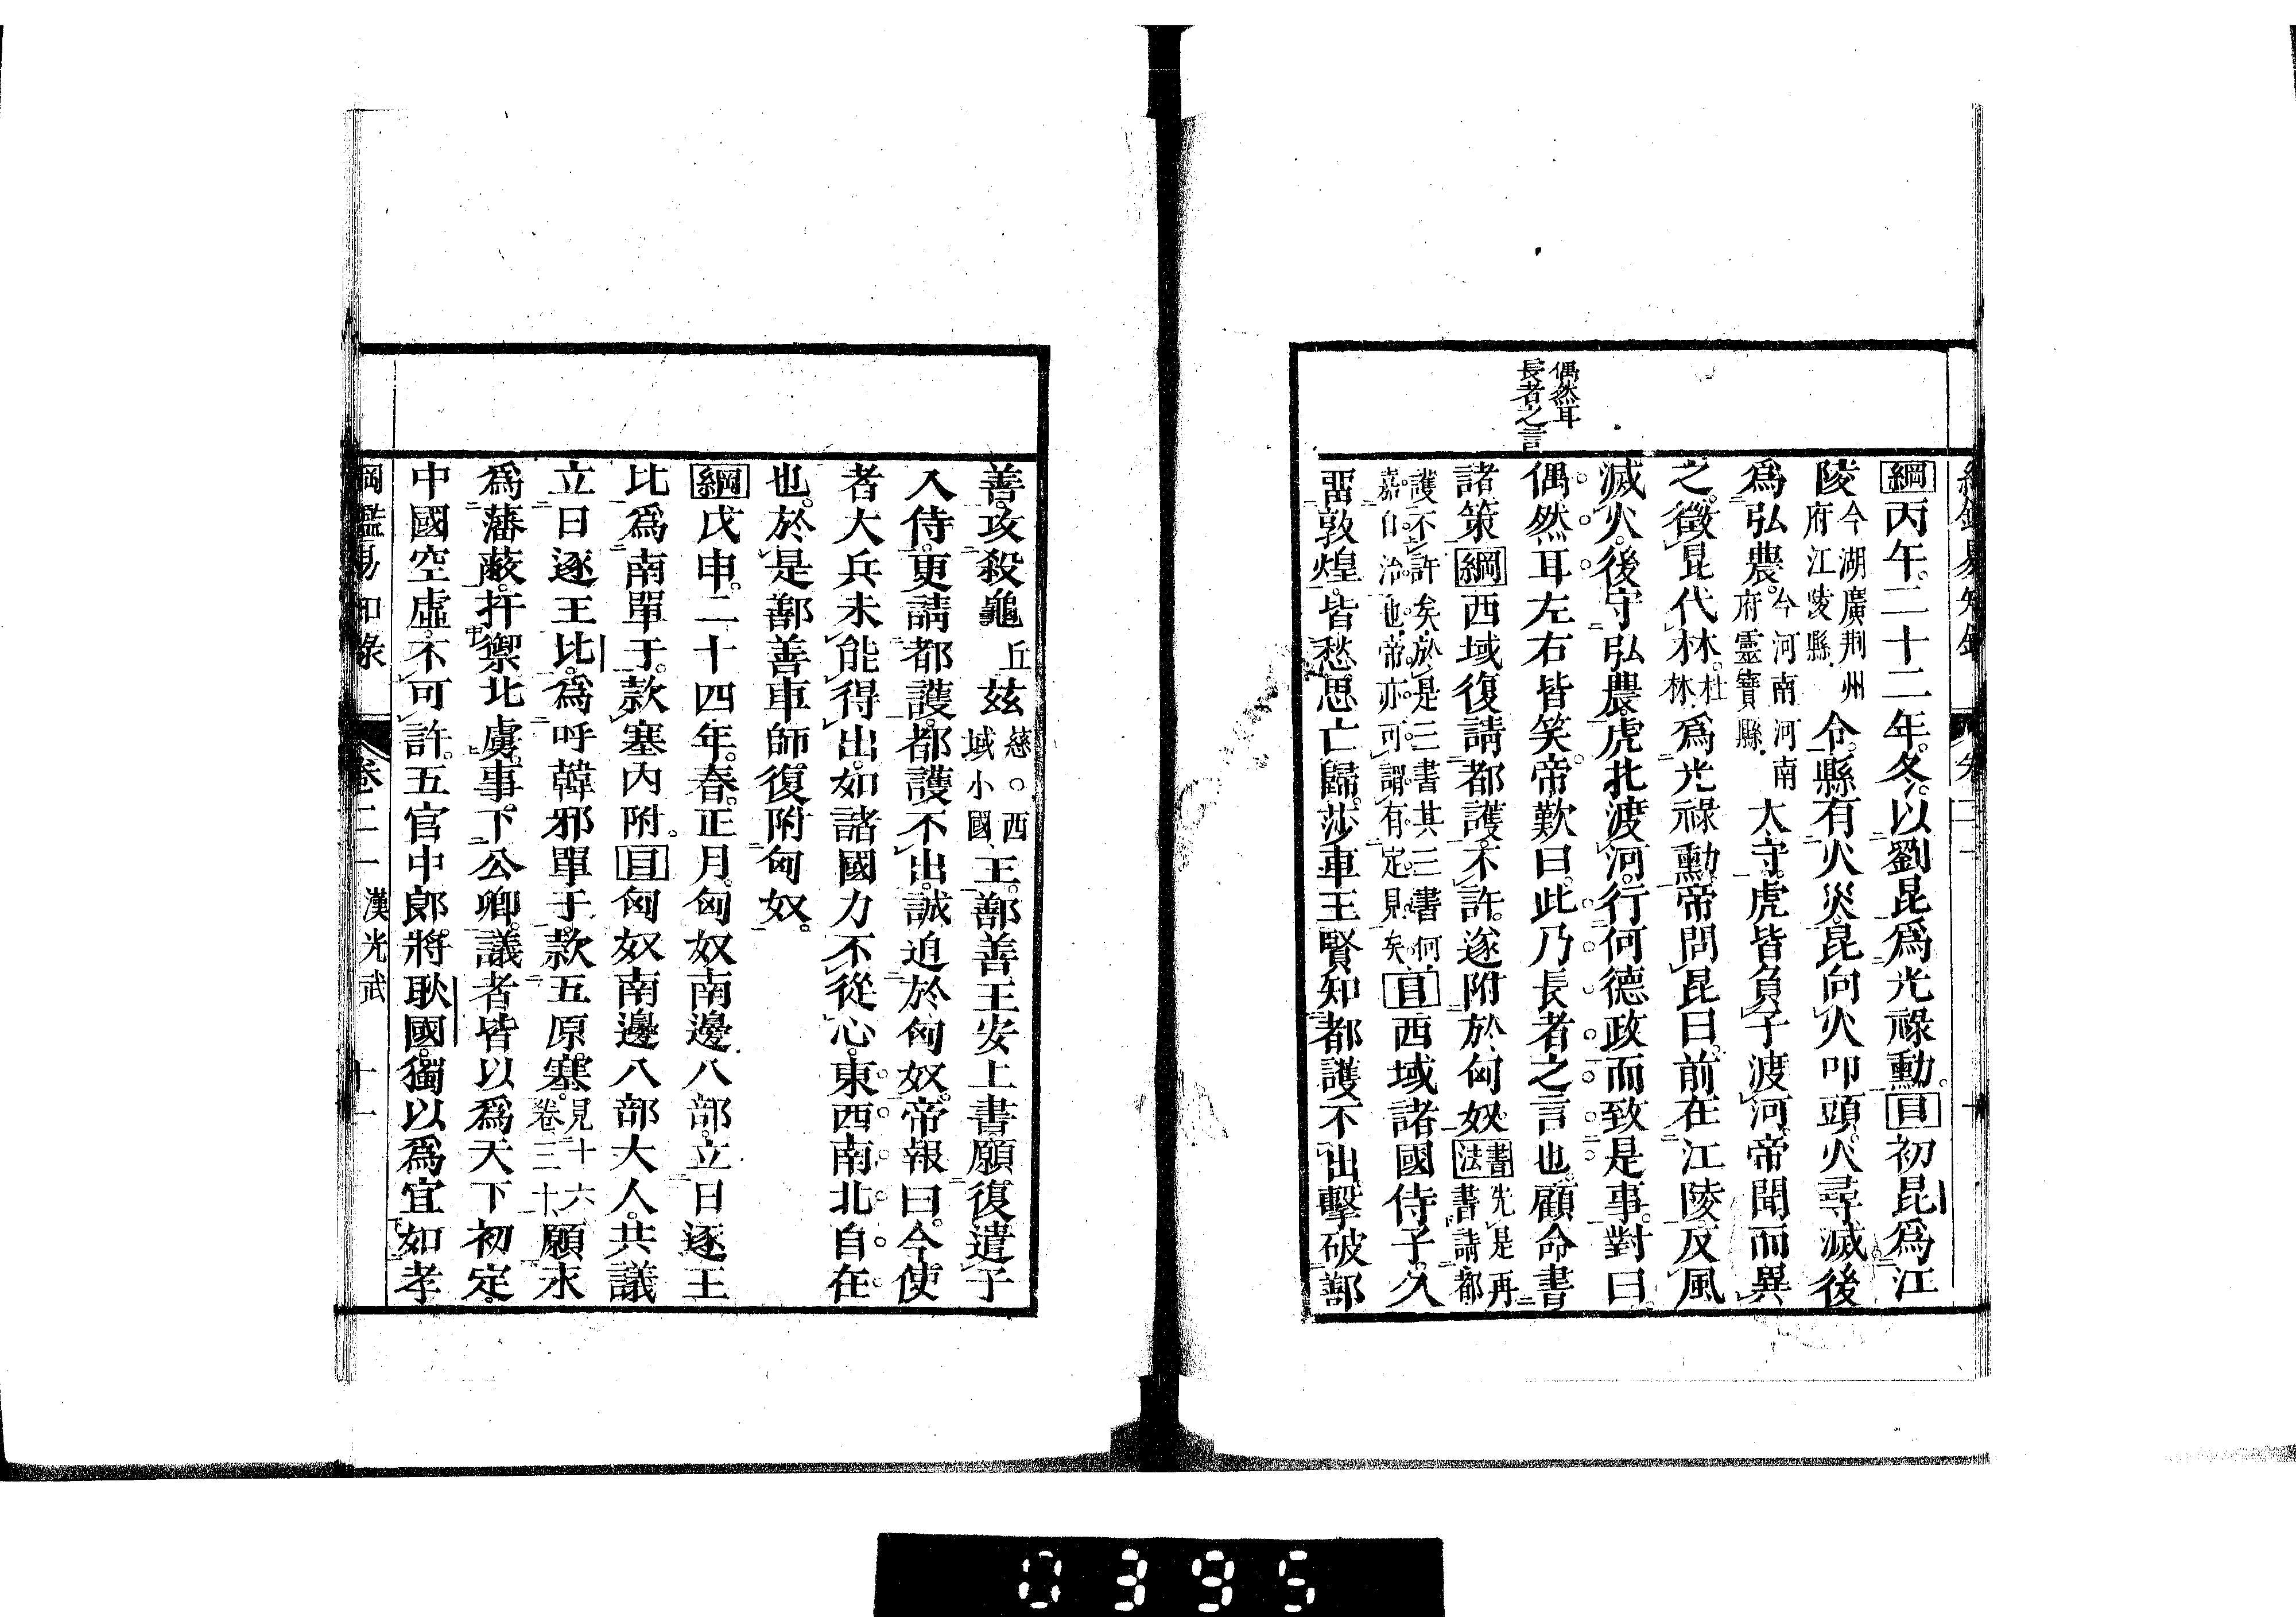 偶然耳
長者之言
綱丙午。二十二年。冬。以劉昆爲光祿勳。目初昆爲江
陵今湖廣荆州府江陵縣令。縣有火災。昆向火叩頭。火尋滅後
爲弘農。今河南河南府靈寶縣大守。虎皆負子渡河。帝聞而異
之。徵昆代林。杜林爲光祿勳。帝問昆曰。前在江陵反風
滅火。後守弘農。虎北渡河。行何德政而致是事。對曰。
偶然耳左右皆笑。帝歎曰。此乃長者之言也。顧命書
諸策綱西域復請都護。不許。遂附於匈奴。書法先是再書請都
護不許矣。於是三書其三書何嘉自治也。帝亦可謂有定見矣。目西域諸國侍子。久
畱敦煌。皆愁思亡歸。莎車王賢知都護不出擊破鄯
善。攻殺龜丘玆慈○西域小國王。鄯善王安上書願復遣子
入侍。更請都護。都護不出。誠迫於匈奴。帝報曰。今使
者大兵未能得出。如諸國力不從心。東西南北自在
也。於是鄯善車師復附匈奴。
綱戊申。二十四年。春。正月。匈奴南邊八部。立日逐王
比爲南單于。款塞內附。目匈奴南邊八部大人。共議
立日逐王比。爲呼韓邪單于。款五原塞。見十六卷三十願永
爲藩蔽。扞禦北虜。事下公卿。議者皆以爲天下初定。
中國空虛。不可許。五官中郎將耿國。獨以爲宜如孝
綱鑑易知錄 卷二一 漢光武 十一